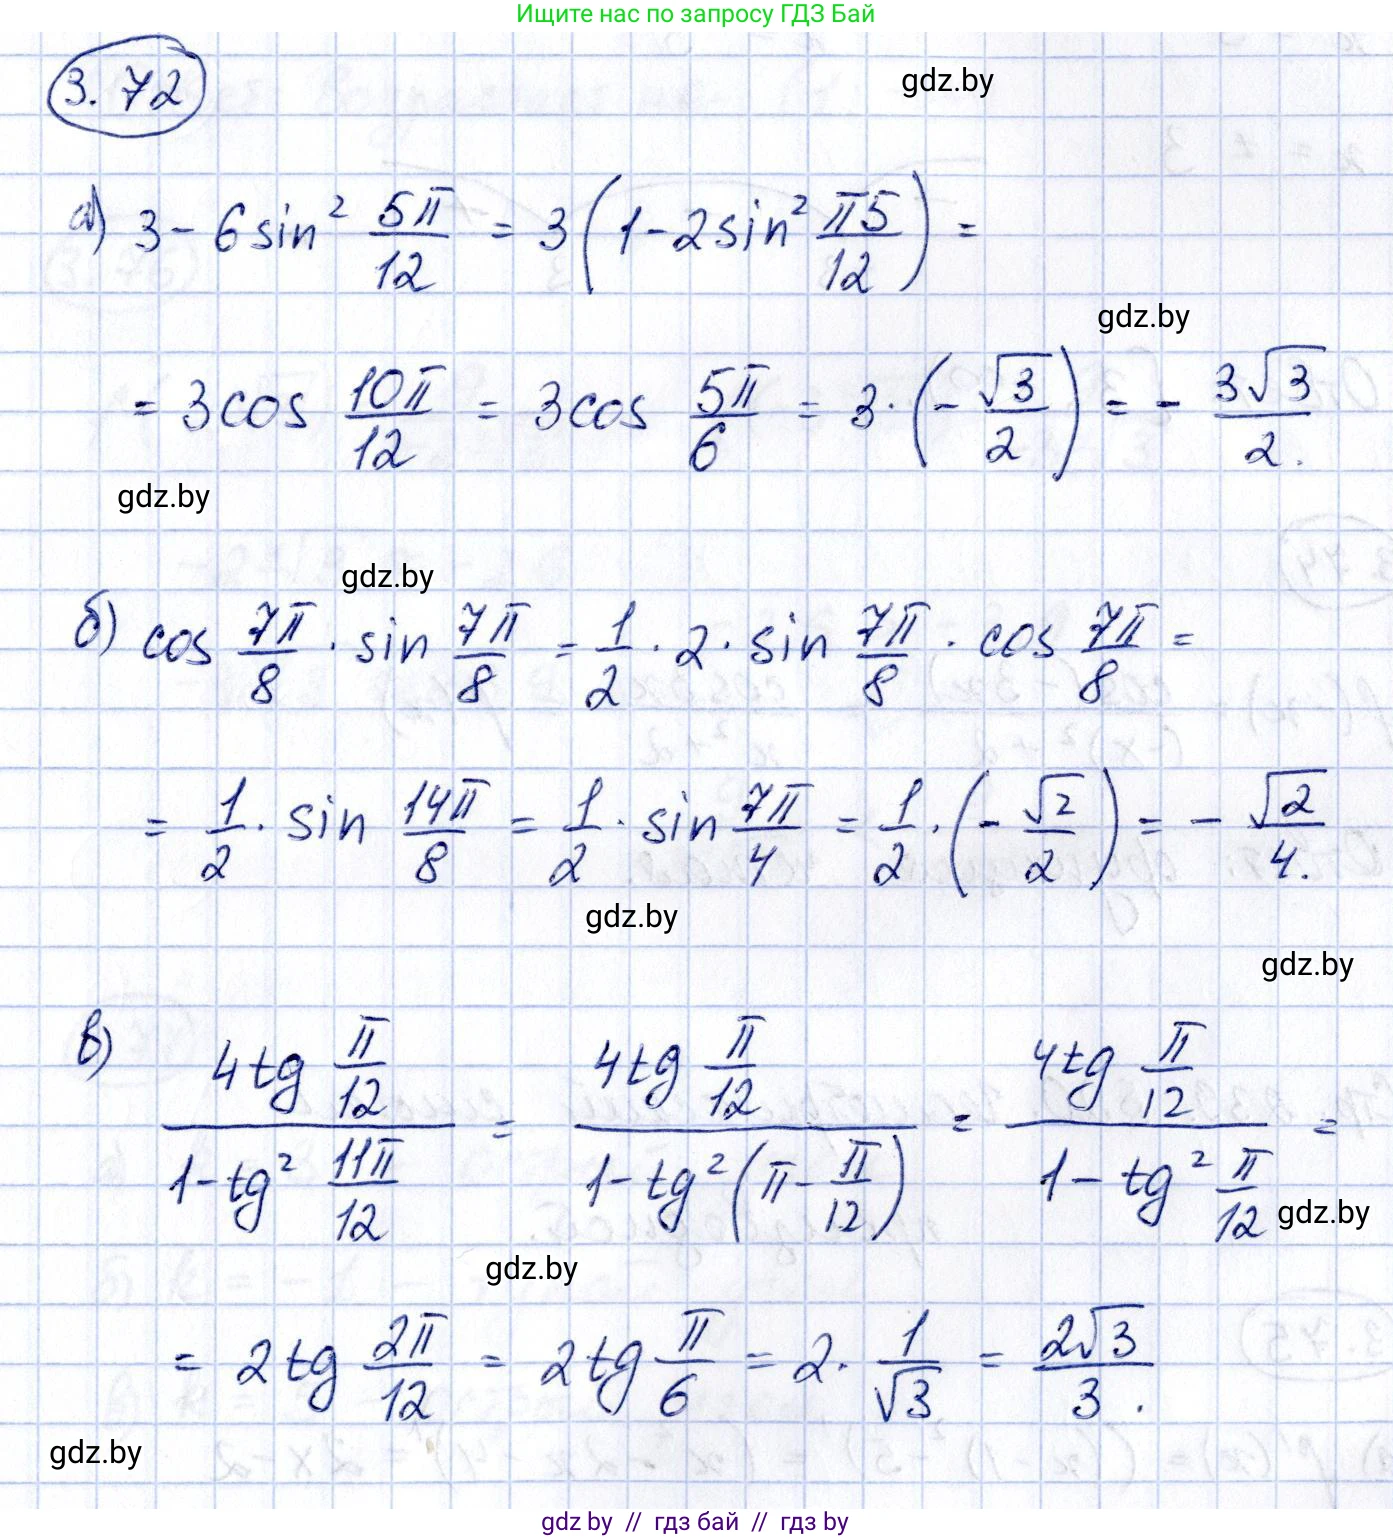 Ищите нас по запросу ГДЗ Бай
3.72
gdz.by
а) 3 - 6 sin² 5π/12 = 3(1 - 2 sin² π5/12) =
gdz.by
= 3 cos 10π/12 = 3 cos 5π/6 = 3 · (-√3/2) = - 3√3/2.
gdz.by
gdz.by
б) cos 7π/8 · sin 7π/8 = 1/2 · 2 · sin 7π/8 · cos 7π/8 =
= 1/2 · sin 14π/8 = 1/2 · sin 7π/4 = 1/2 · (-√2/2) = - √2/4.
gdz.by
gdz.by
в) (4 tg π/12)/(1 - tg² 11π/12) = (4 tg π/12)/(1 - tg² (π - π/12)) = (4 tg π/12)/(1 - tg² π/12) =
gdz.by
gdz.by
= 2 tg 2π/12 = 2 tg π/6 = 2 · 1/√3 = 2√3/3.
gdz.by
gdz by // гдз бай // gdz by